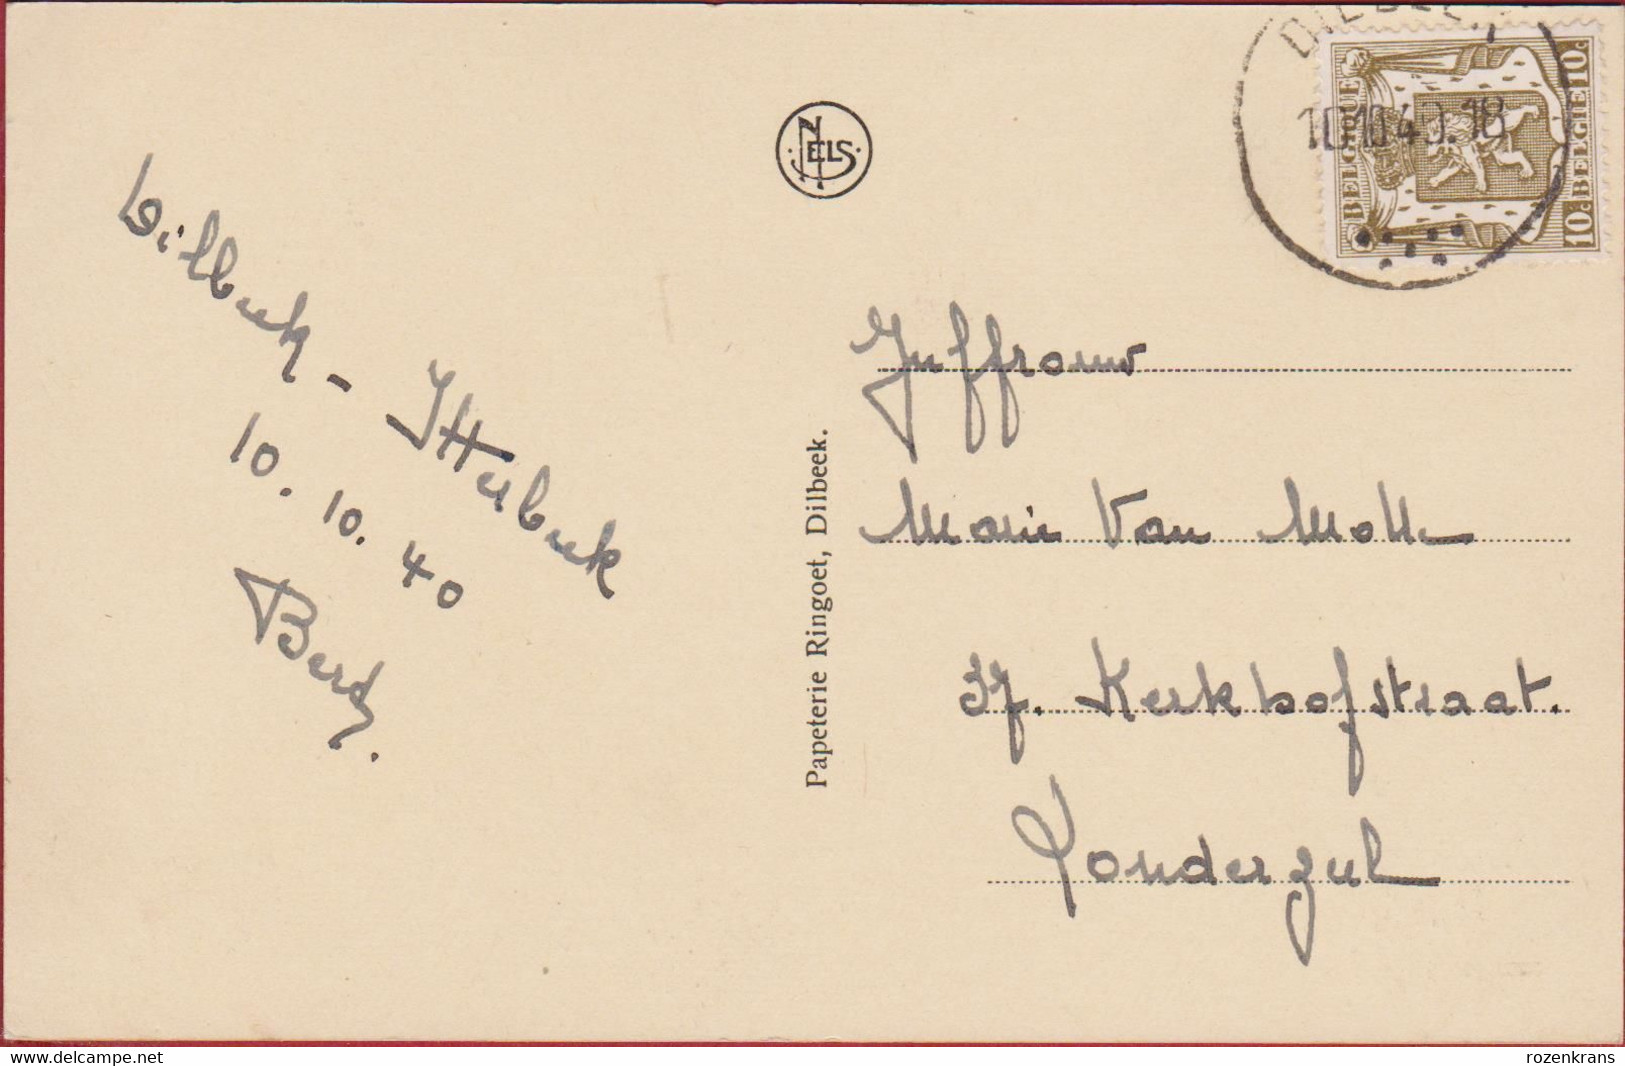 Dilbeek - Itterbeek
10. 10. 40
NELS
Papeterie Ringoet, Dilbeek.
DILBEEK
10 10 40. 18
BELGIQUE
10c BELGIE 10c
Juffrouw
Marie Van Molle
37. Kerkhofstraat.
Londerzeel
www.delcampe.net
rozenkrans